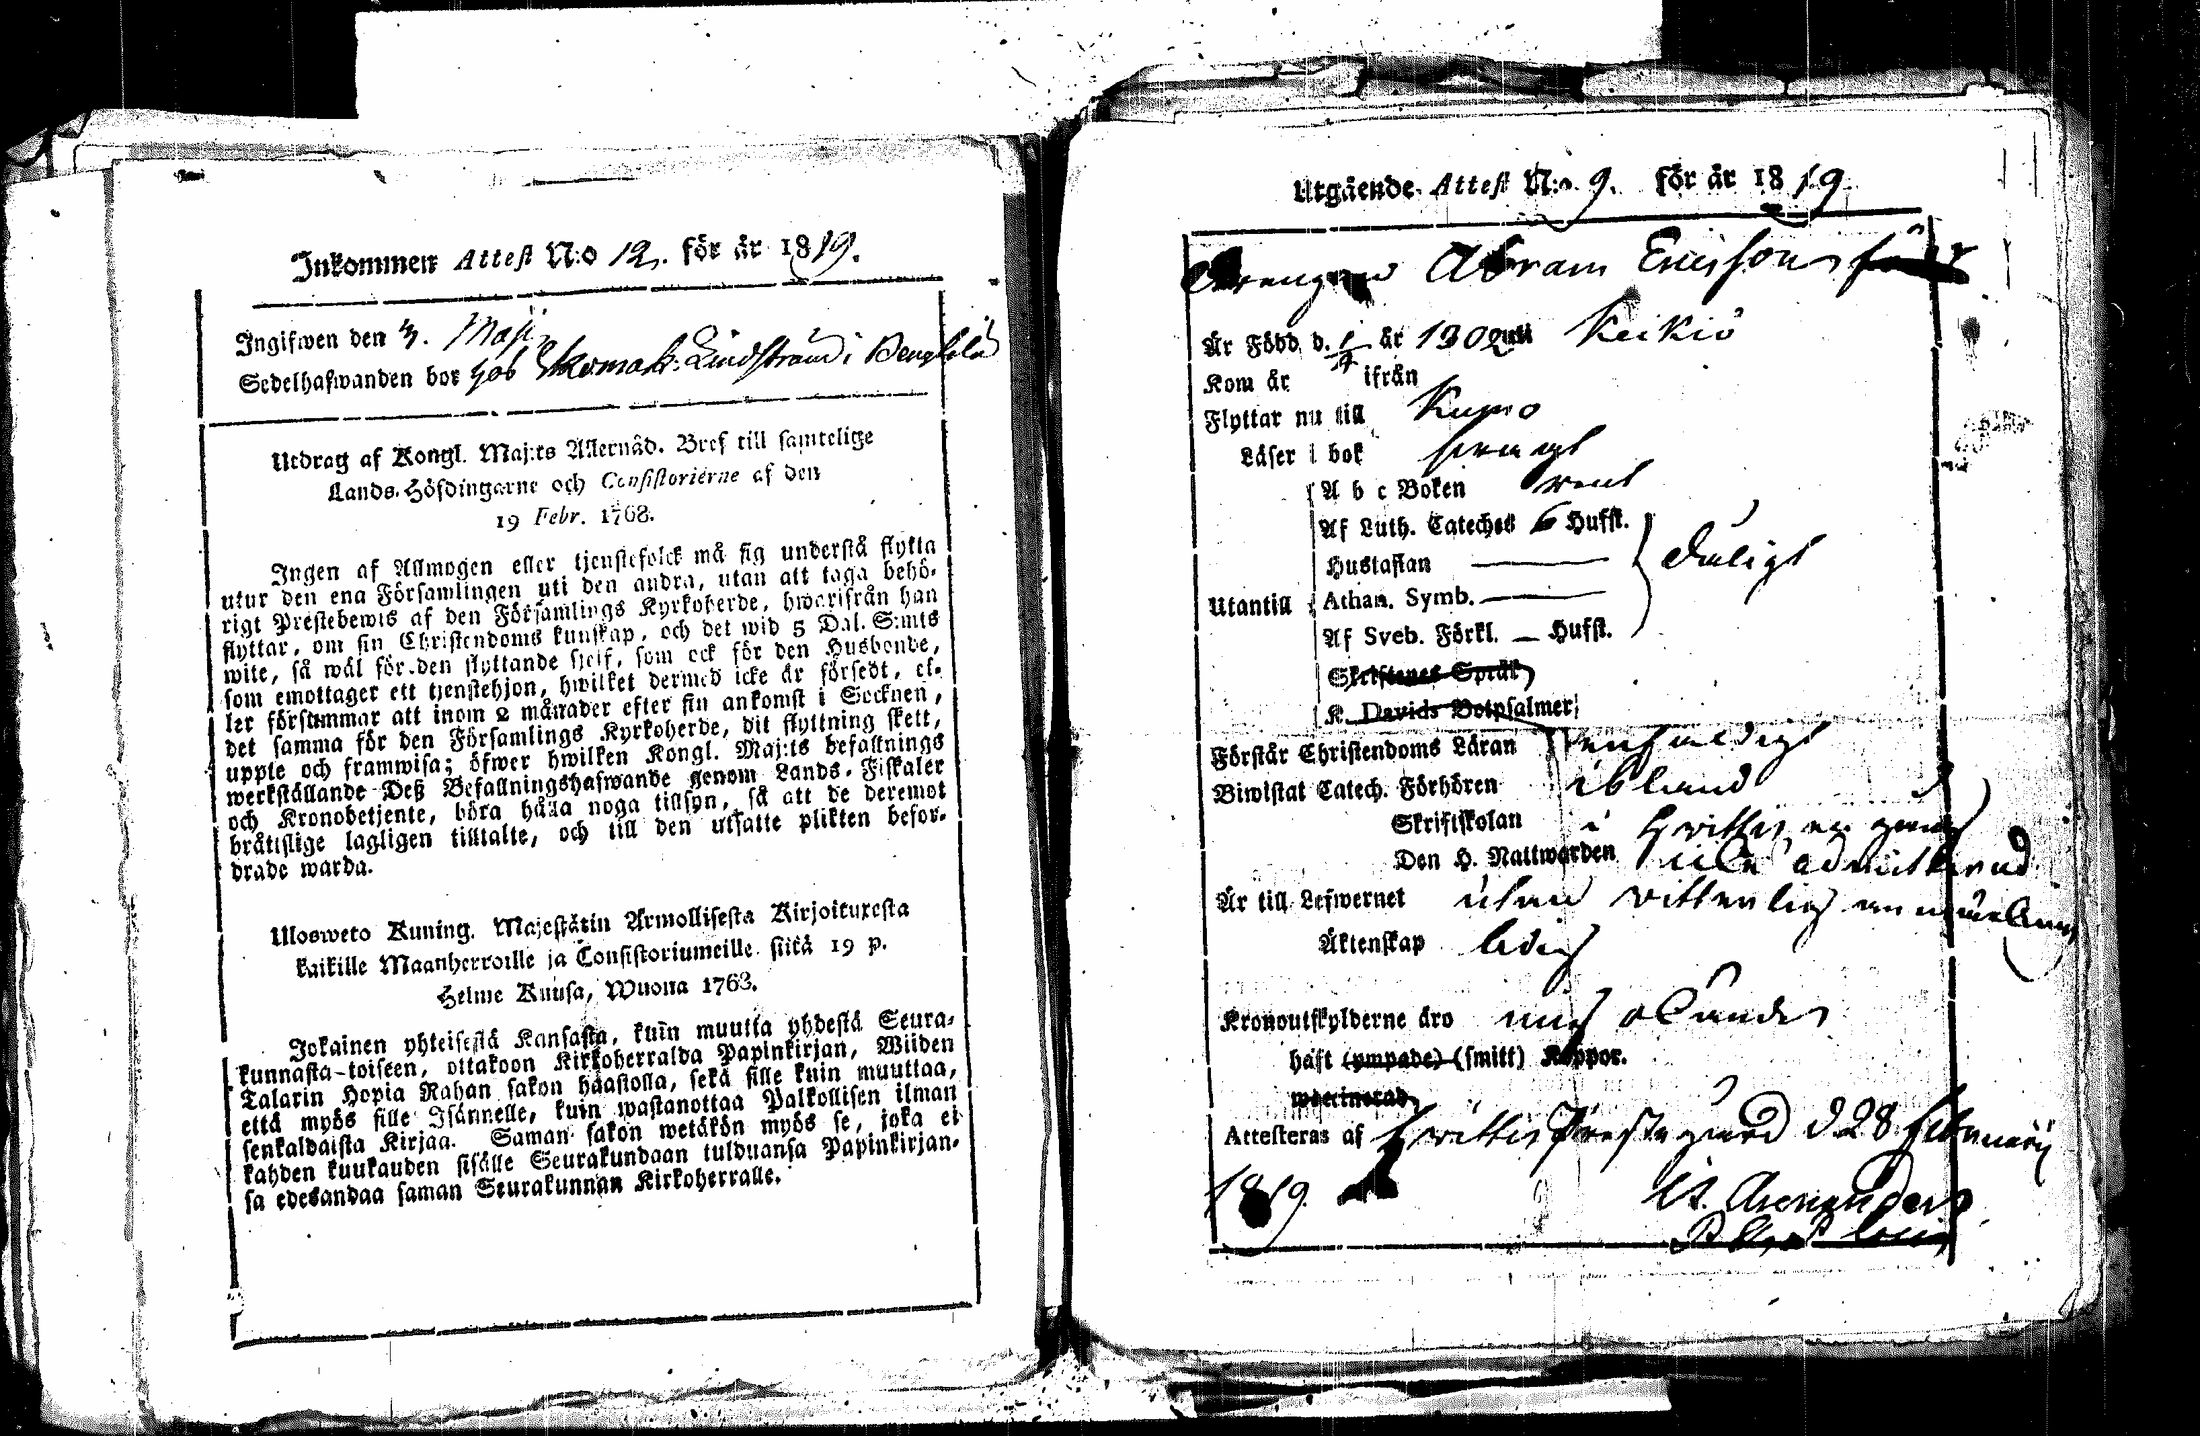 Inkommen Attest N:o 12. för år 1819.
Ingifwen den 3. Maji
Sedelhafwanden bor hos Skomak. Lindström i Bengtelä
Utdrag af Kongl. Maj:ts Allernåd. Bref till samtelige
Lands-Höfdingarne och Consistorierne af den
19 Febr. 1768.
Ingen af Allmogen eller tjenstefolck må sig understå flytta
utur den ena Församlingen uti den andra, utan att taga behö-
rigt Prestebewis af den Församlings Kyrkoherde, hwarifrån han
flyttar, om sin Christendoms kunskap, och det wid 5 Dal. S:mts
wite, så wäl för den flyttande sjelf, som ock för den Husbonde,
som emottager ett tjenstehjon, hwilket dermed icke är försedt, el-
ler försummar att inom 2 månader efter sin ankomst i Socknen,
det samma för den Församlings Kyrkoherde, dit flyttning skett,
uppte och framwisa; öfwer hwilken Kongl. Maj:ts befallnings
werkställande Deß Befallningshafwande genom Lands-Fiskaler
och Kronobetjente, böra hålla noga tillsyn, så att de deremot
bråttslige lagligen tilltalte, och till den utsatte plikten befor-
drade warda.
Ulosweto Kuning. Majestätin Armollisesta Kirjoituxesta
kaikille Maanherroille ja Consistoriumeille siitä 19 p.
Helme Kuusa, Wuona 1768.
Jokainen yhteisestä Kansasta, kuin muutta yhdestä Seura-
kunnasta toiseen, ottakoon Kirkoherralda Papinkirjan, Wiiden
Talarin Hopia Rahan sakon haastolla, sekä sille kuin muuttaa,
että myös sille Isännelle, kuin wastanottaa Palkollisen ilman
senkaldaista Kirjaa. Saman sakon wetäkön myös se, joka ei
kahden kuukauden sisälle Seurakundaan tulduansa Papinkirjan-
sa edesandaa saman Seurakunnan Kirkoherralle.
Utgående Attest N:o 9. för år 1819
Drengen Abram Ericsson
Är Född d. 1/9 år 1802 uti Keikiö
Kom år ifrån
Flyttar nu till Kumo
Läser i bok swagt
A b c Boken rent
Af Luth. Cateches 6 Hufst.
Hustaflan
Utantill Athan. Symb. Daligt
Af Sveb. Förkl. — Hufst.
Skriftenes Språk
K. Davids Botpsalmer
Förstår Christendoms Läran enfaldigt
Biwistat Catech. Förhören ibland
Skriftskolan i Hvittis en gång
Den H. Nattwarden icke admitterad
Är till Lefwernet utan vitterlig anmärkning
Äktenskap ledig
Kronoutskylderne äro
haft (ympade) (smitt) Koppor.
waccinerad
Attesteras af Hvittis Prestegård d 28 Februarij
1819.